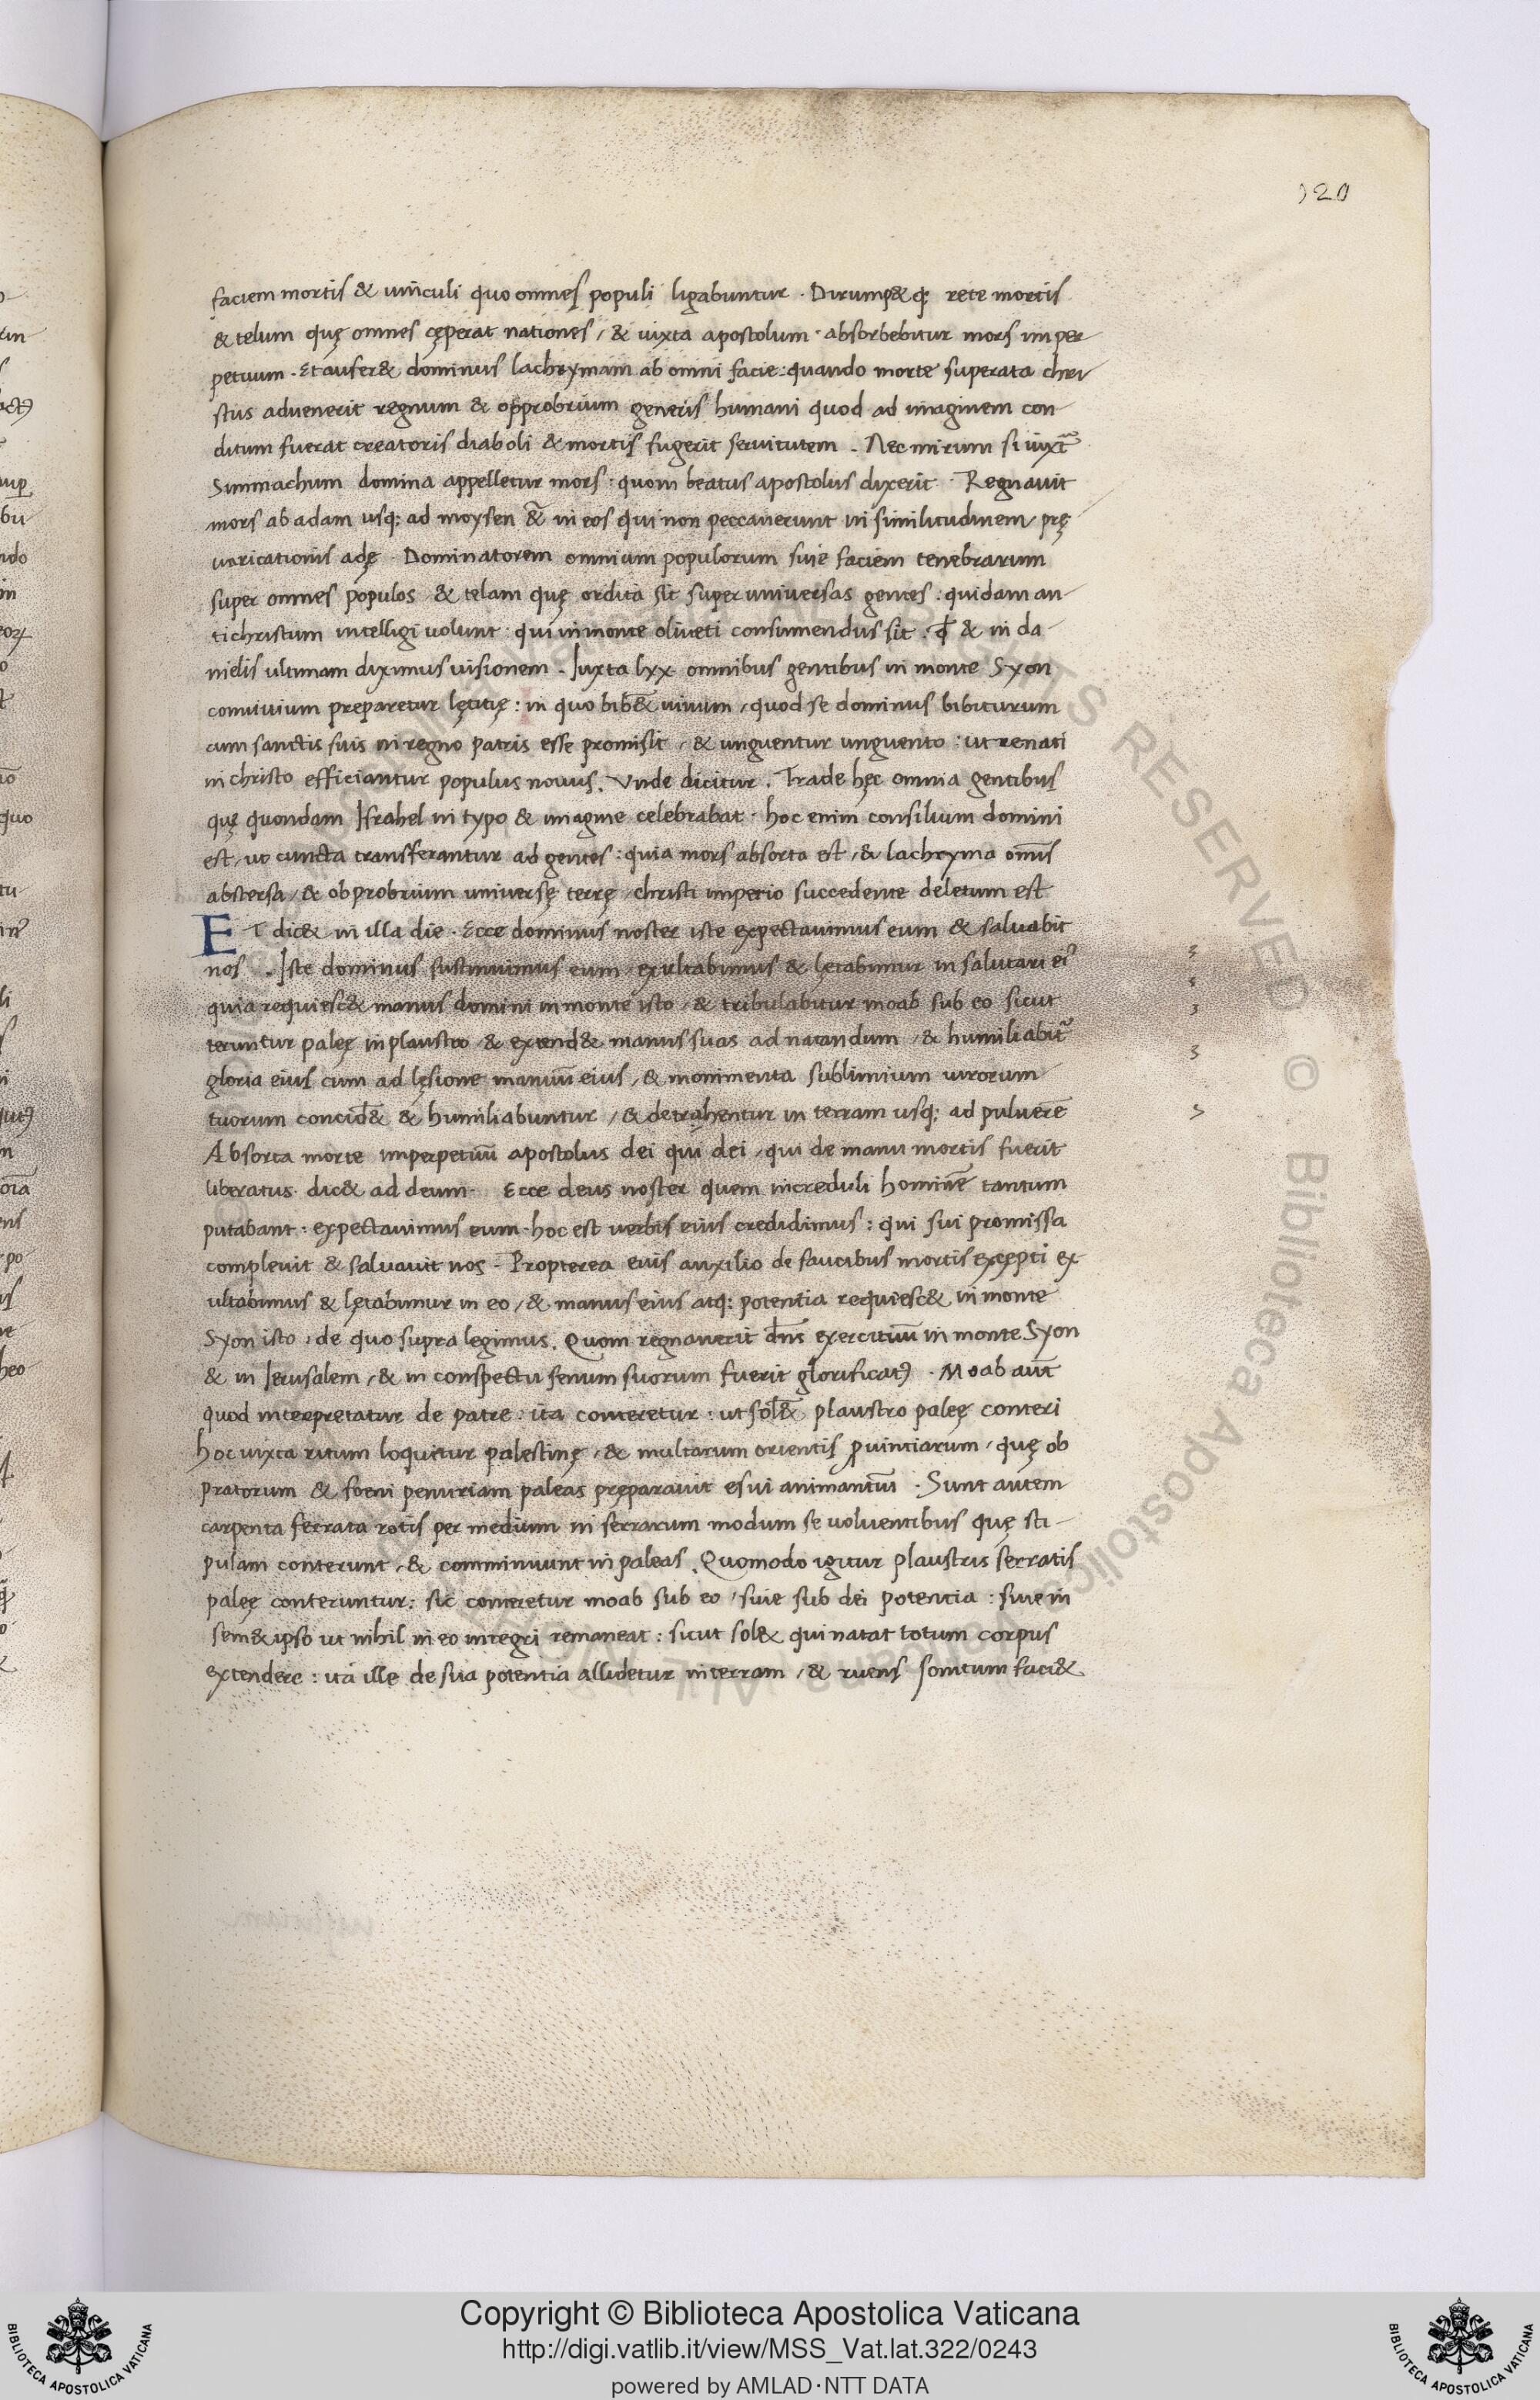 120
faciem mortis & uinculi quo omnes populi ligabuntur · Dirump& q; rete mortis
& telum quę omnes cęperat nationes / & iuxta apostolum · absorbebitur mors in per
petuum · Et aufer& dominus lachrymam ab omni facie : quando morte superata chri
stus aduenerit regnum & opprobrium generis humani quod ad imaginem con-
ditum fuerat creatoris diaboli & mortis fugerit seruitutem . Nec mirum si iuxta
Simmachum domina appelletur mors : quom beatus apostolus dixerit · Regnauit
mors ab adam usq; ad moysen & in eos qui non peccauerunt in similitudinem / prę
uaricationis adę · Dominatorem omnium populorum siue faciem tenebrarum
super omnes populos & telam quę ordita sit super uniuersas gentes : quidam an-
tichristum intelligi uolunt : qui in monte oliueti consumendus sit : qđ & in da-
nielis ultimam diximus uisionem . Iuxta lxx omnibus gentibus in monte Syon
conuiuium preparetur lętitię : in quo bib& uinum / quod se dominus bibiturum
cum sanctis suis in regno patris esse promisit / & unguentur unguento : ut renati
in christo efficiantur populus nouus . Vnde dicitur . Trade hęc omnia gentibus
quę quondam Israhel in typo & imagine celebrabat · hoc enim consilium domini
est / ut cuncta transferantur ad gentes : quia mors absorta est / & lachryma om̄is
abstersa / & obprobrium uniuersę terrę / christi imperio succedente deletum est
ET dic& in illa die · Ecce dominus noster iste expectauimus eum & saluabit
nos . Iste dominus sustinuimus eum / exultabimus & lętabimur in salutari ei9
quia requiesc& manus domini in monte isto / & tribulabitur moab sub eo sicut
teruntur palęę in plaustro / & extend& manus suas ad natandum / & humiliabit᷑
gloria eius cum ad lęsione manuū eius / & monimenta sublimium uirorum
tuorum concid& & humiliabuntur / & detrahentur in terram usq; ad puluerē
Absorta morte inperpetuū apostolus dei qui dei / qui de manu mortis fuerit
liberatus · dic& ad deum · Ecce deus noster quem increduli hominē tantum
putabant : expectauimus eum · hoc est uerbis eius credidimus : qui sui promissa
compleuit & saluauit nos . Propterea euis auxilio de faucibus mortis excępti ex
ultabimus & lętabimur in eo / & manus eius atq; potentia requiesc& in monte
Syon isto : de quo supra legimus . Quom regnauerit dn̄s exercituū in monte Syon
& in Ierusalem / & in conspectu senum suorum fuerit glorificat9 · Moab aūt
quod interpretatur de patre : ita conteretur : ut sol& plaustro palęę conteri
hoc iuxta ritum loquitur palestinę / & multarum orientis ꝓuintiarum / quę ob
pratorum & foeni penuriam paleas pręparauit esui animantiū · Sunt autem
carpenta ferrata rotis per medium in serrarum modum se uoluentibus quę sti-
pulam conterunt / & comminuunt in paleas . Quomodo igitur plaustris serratis
palęę conteruntur : sic conteretur moab sub eo / siue sub dei potentia : siue in
sem&ipso ut nihil in eo integri remaneat : sicut sol& qui natat totum corpus
extendere : ita ille de sua potentia allidetur in terram / & ruens sonitum faci&
Copyright © Biblioteca Apostolica Vaticana
http://digi.vatlib.it/view/MSS_Vat.lat.322/0243
powered by AMLAD·NTT DATA